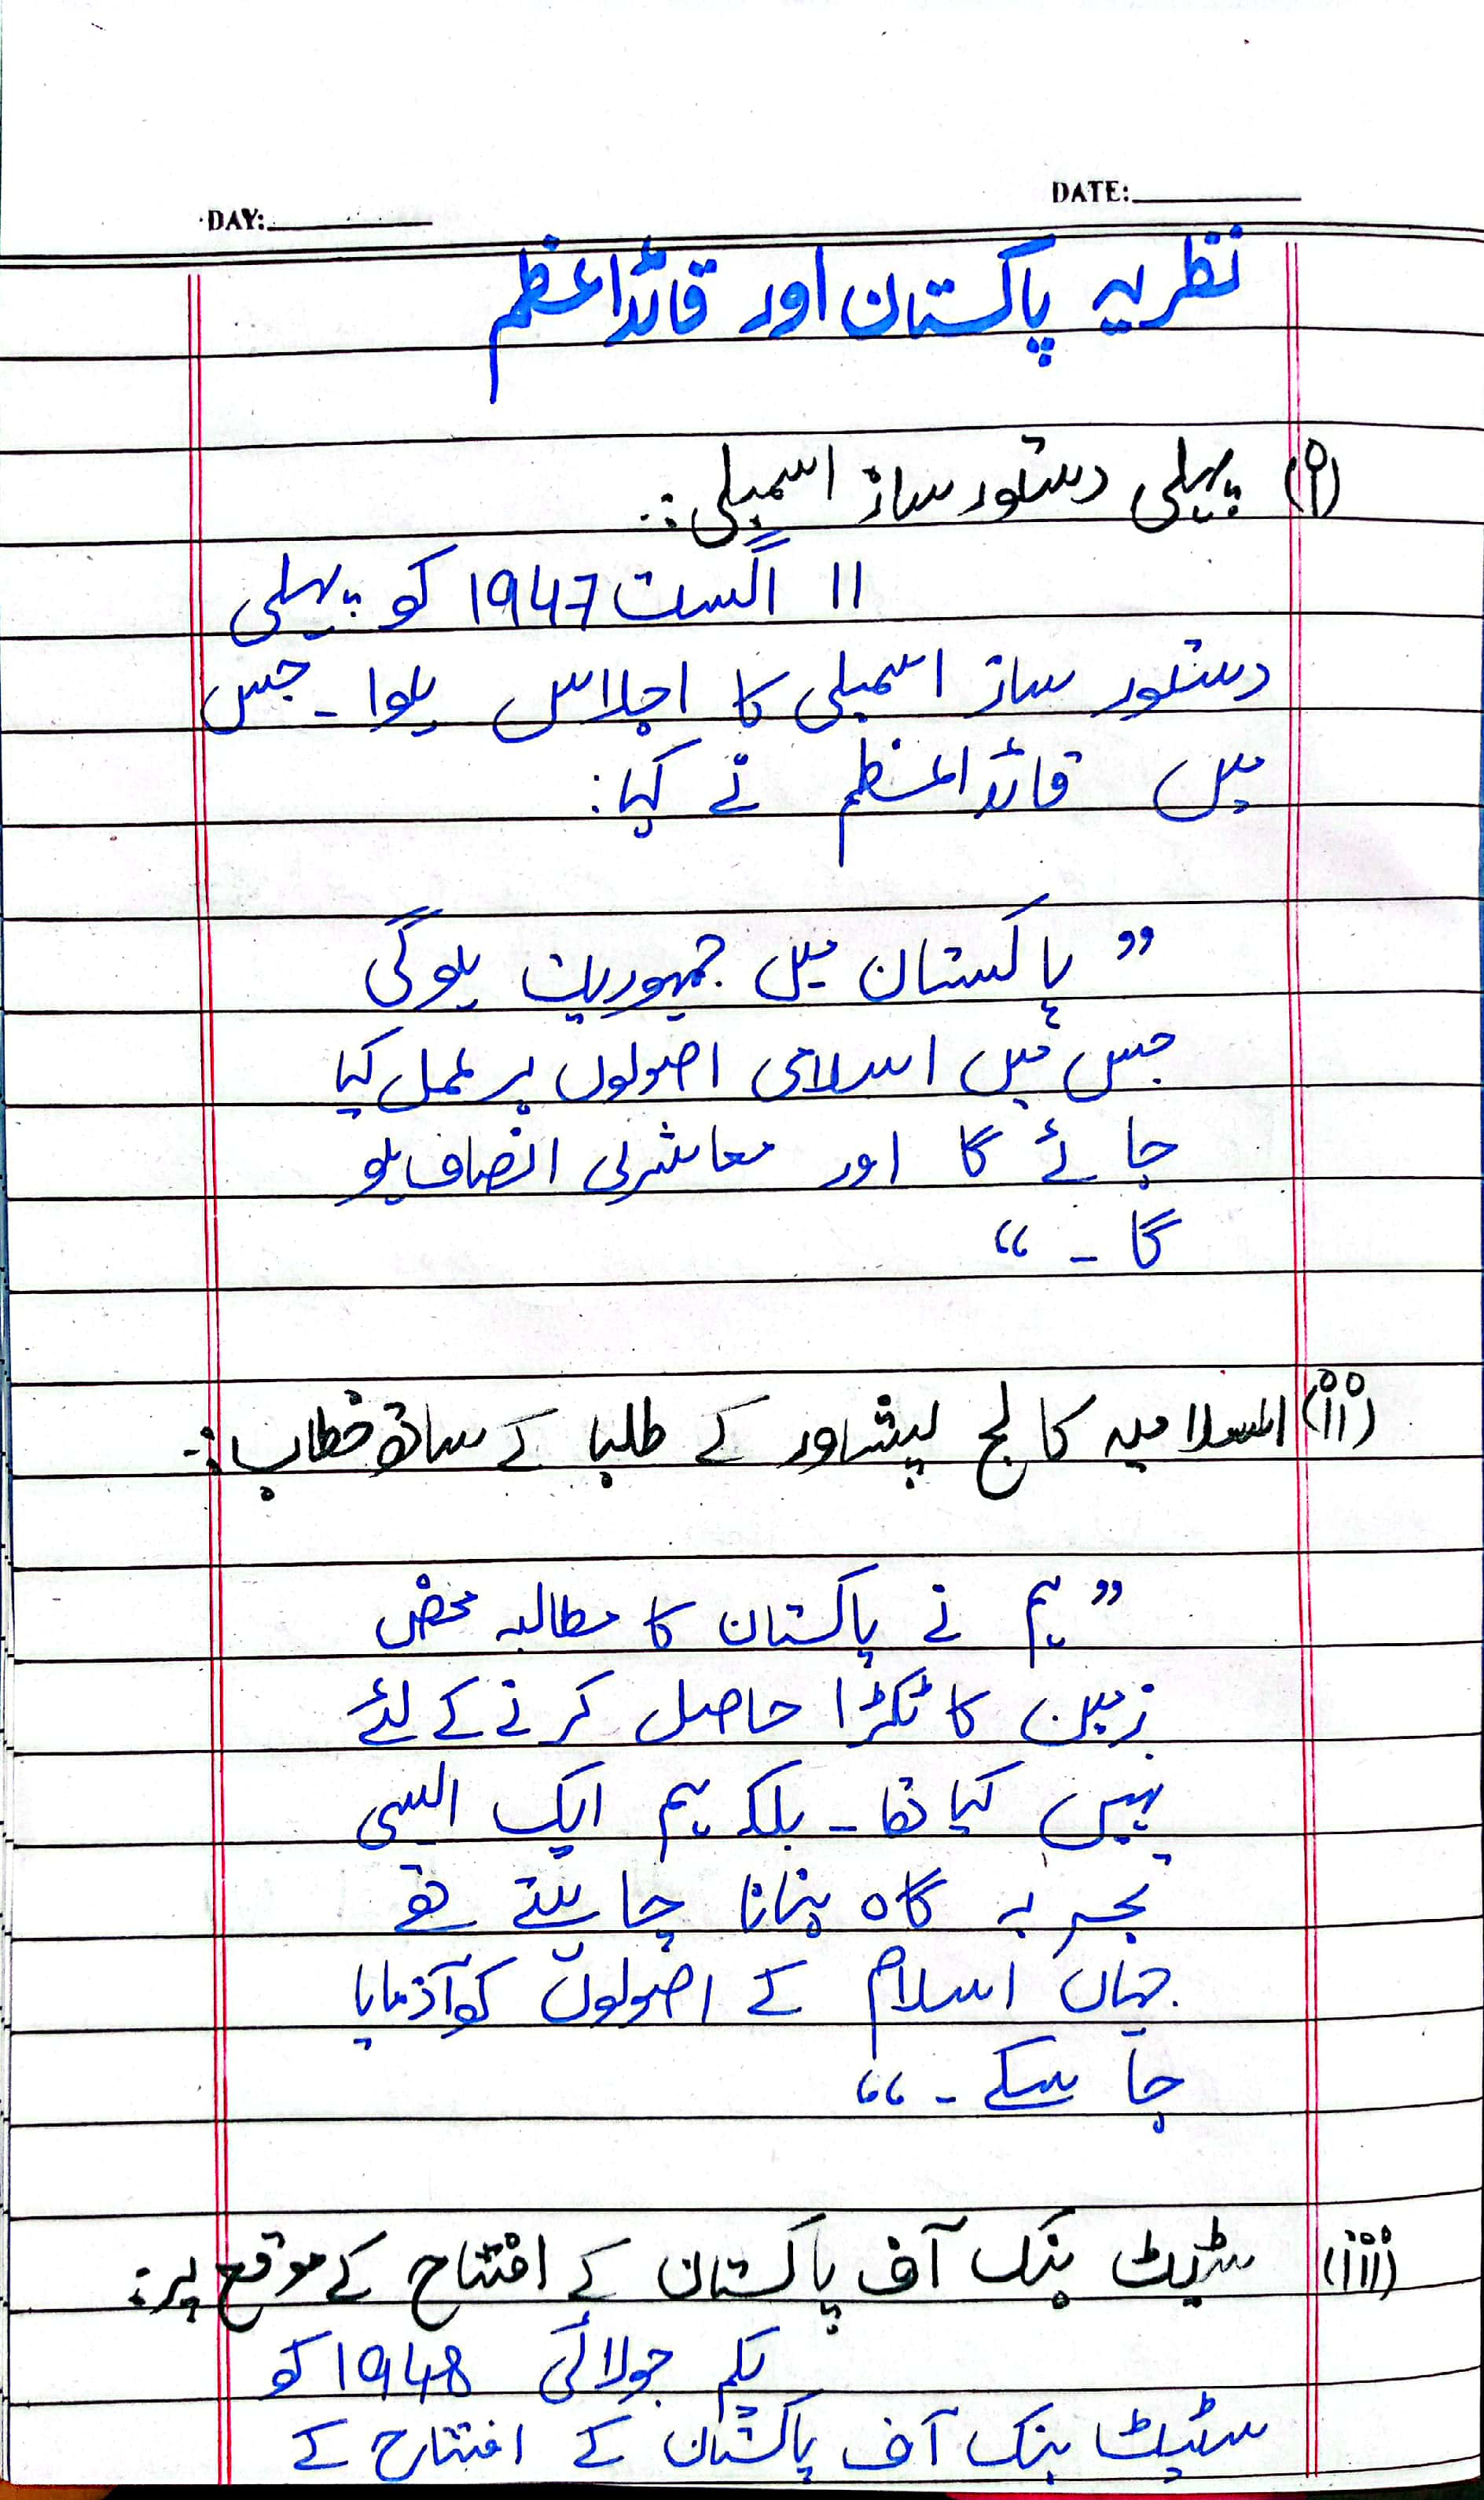 DATE:
DAY:
نظریہ پاکستان اور قائداعظم
(i) پہلی دستور ساز اسمبلی:۔
11 اگست 1947 کو پہلی
دستور ساز اسمبلی کا اجلاس ہوا۔ جس
میں قائداعظم نے کہا:
”پاکستان میں جمہوریت ہوگی
جس میں اسلامی اصولوں پر عمل کیا
جائے گا اور معاشرتی انصاف ہو
گا۔“
(ii) اسلامیہ کالج پشاور کے طلبا کے ساتھ خطاب:۔
”ہم نے پاکستان کا مطالبہ محض
زمین کا ٹکڑا حاصل کرنے کے لئے
نہیں کیا تھا۔ بلکہ ہم ایک ایسی
تجربہ گاہ بنانا چاہتے تھے
جہاں اسلام کے اصولوں کو آزمایا
جا سکے۔“
(iii) سٹیٹ بنک آف پاکستان کے افتتاح کے موقع پر:
یکم جولائی 1948 کو
سٹیٹ بنک آف پاکستان کے افتتاح کے